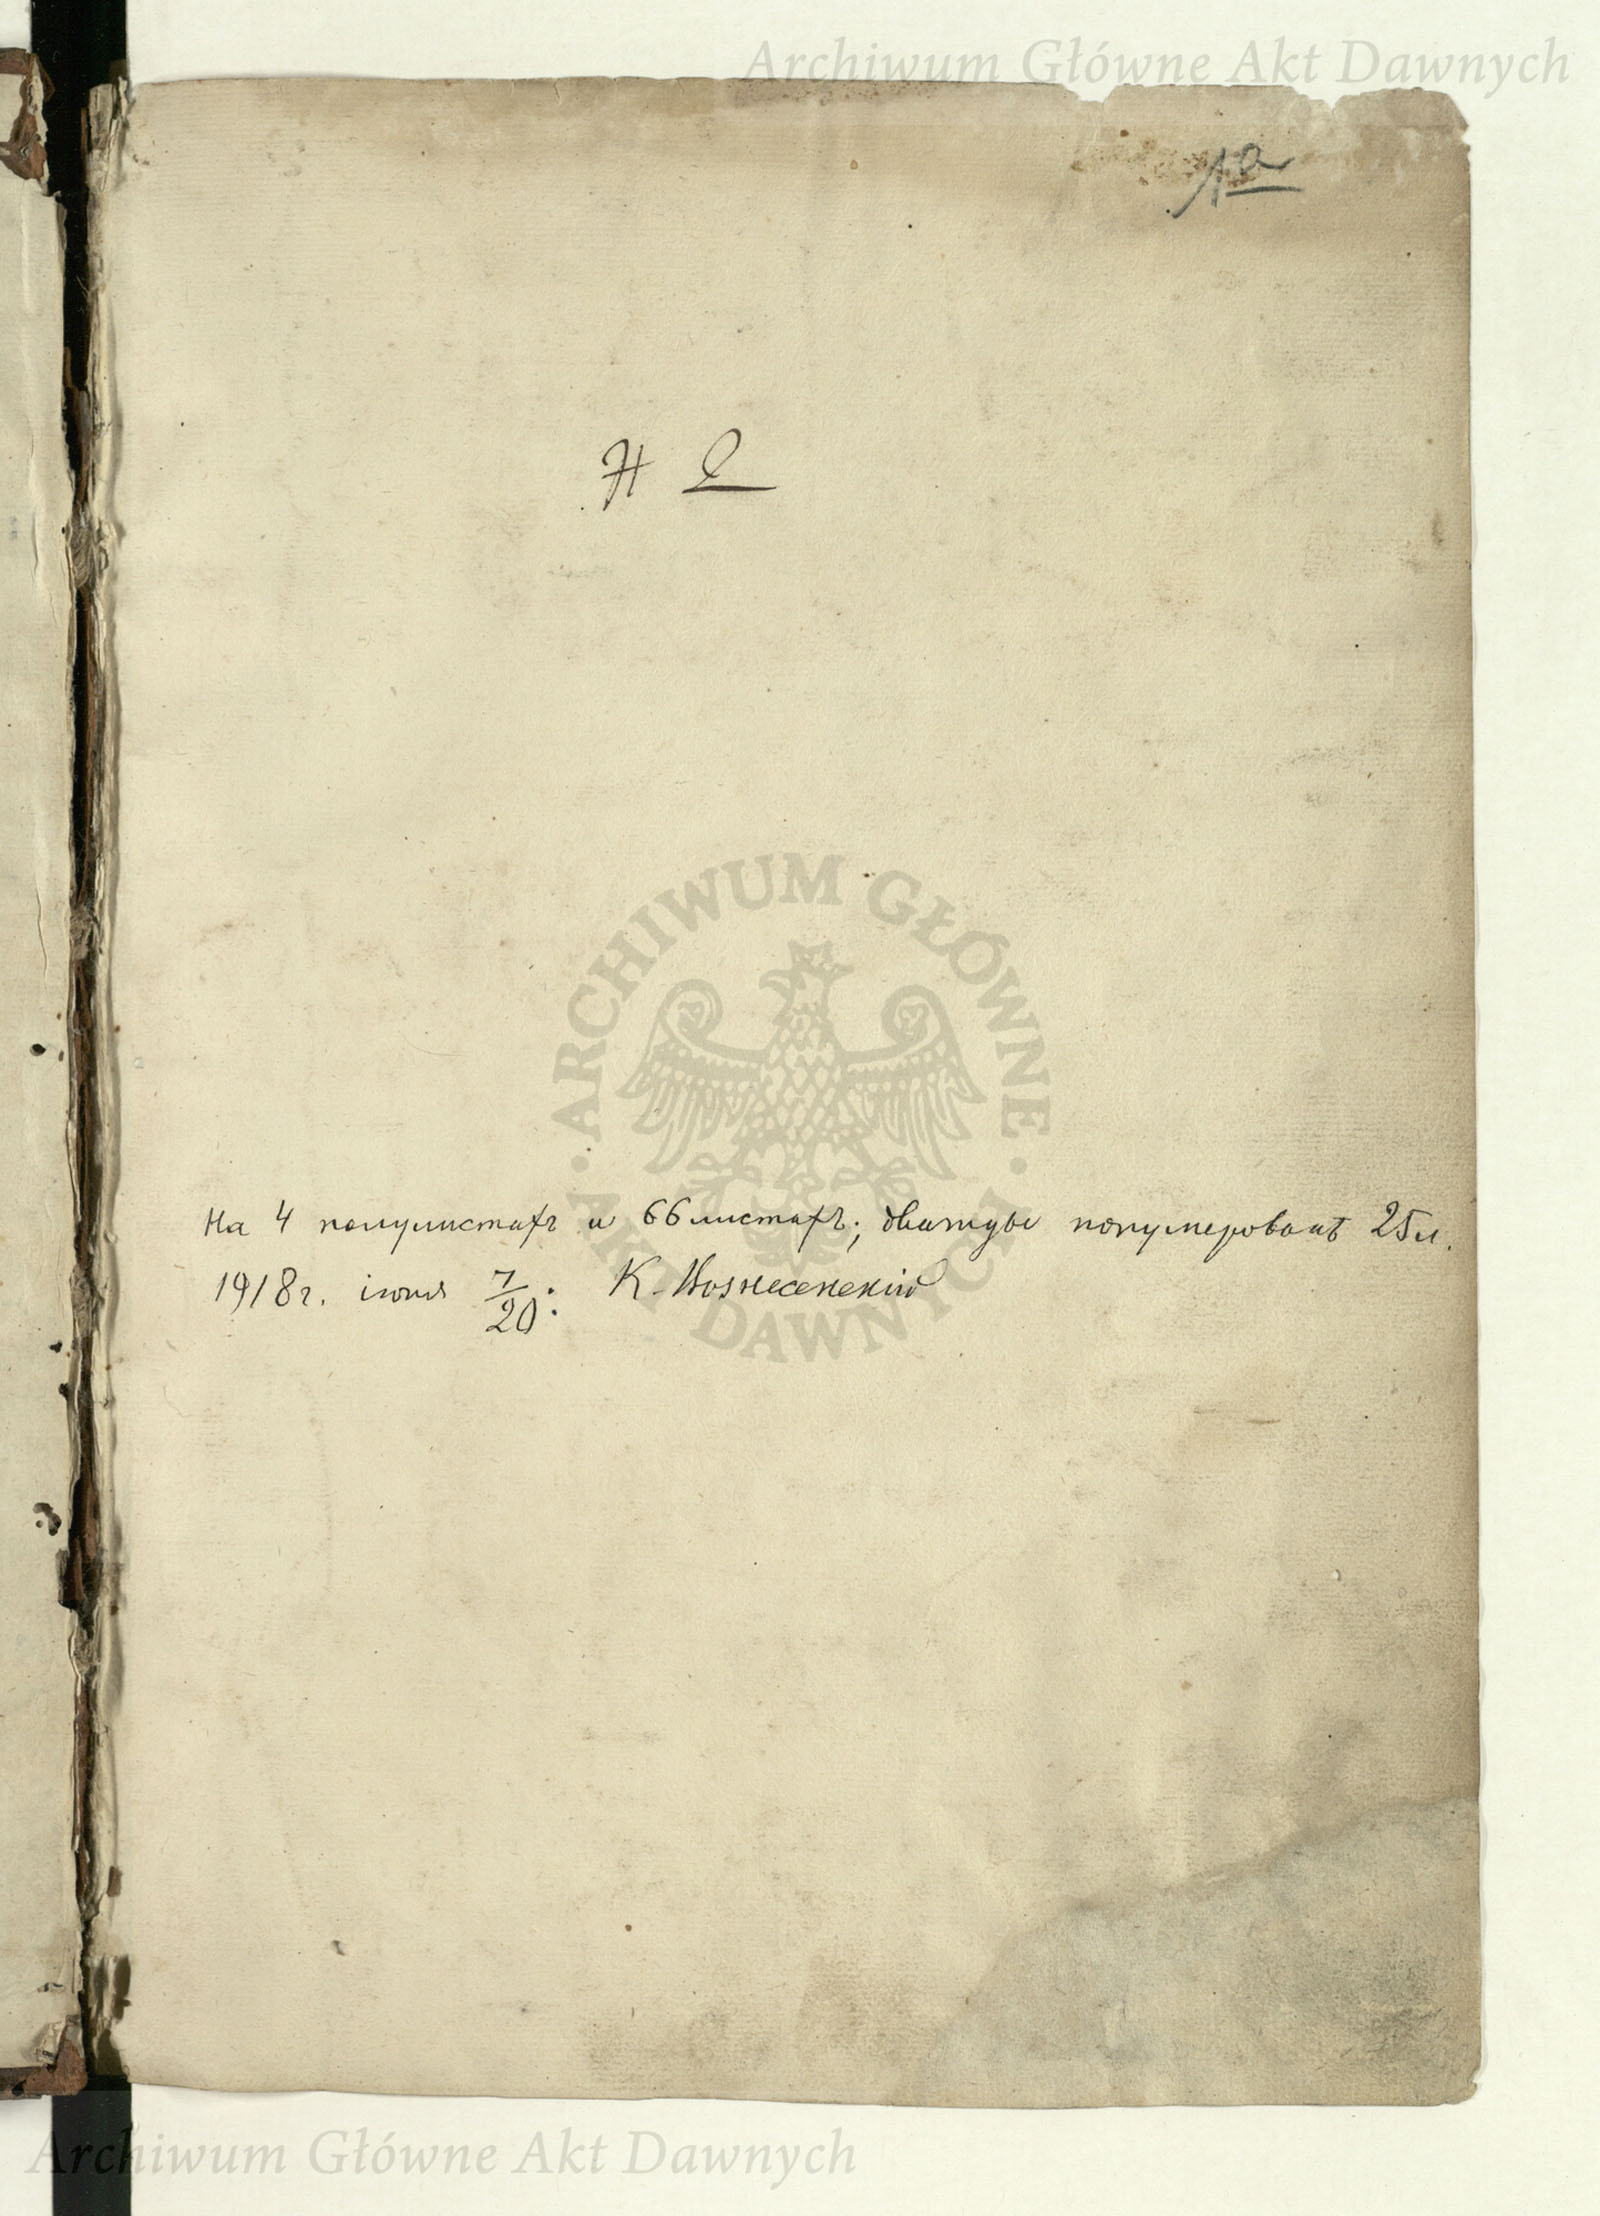 Archiwum Główne Akt Dawnych
1a
H 2
ARCHIWUM GŁÓWNE
AKT DAWNYCH
На 4 полулистахъ и 66 листахъ; дважды понумерованъ 25 л.
1918 г. іюня 7/20. К. Вознесенскій
Archiwum Główne Akt Dawnych